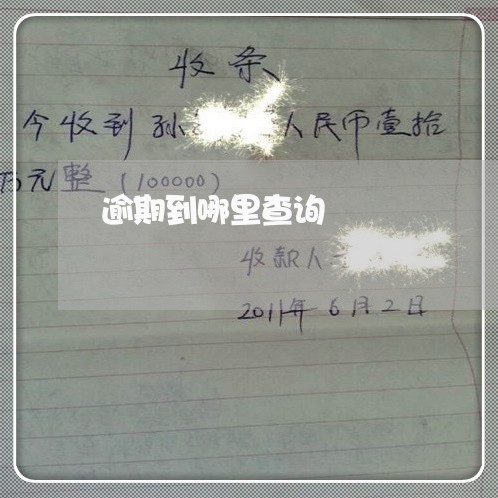 收条
今收到孙 人民币壹拾
万元整(100000)
逾期到哪里查询
收款人
2011年6月2日